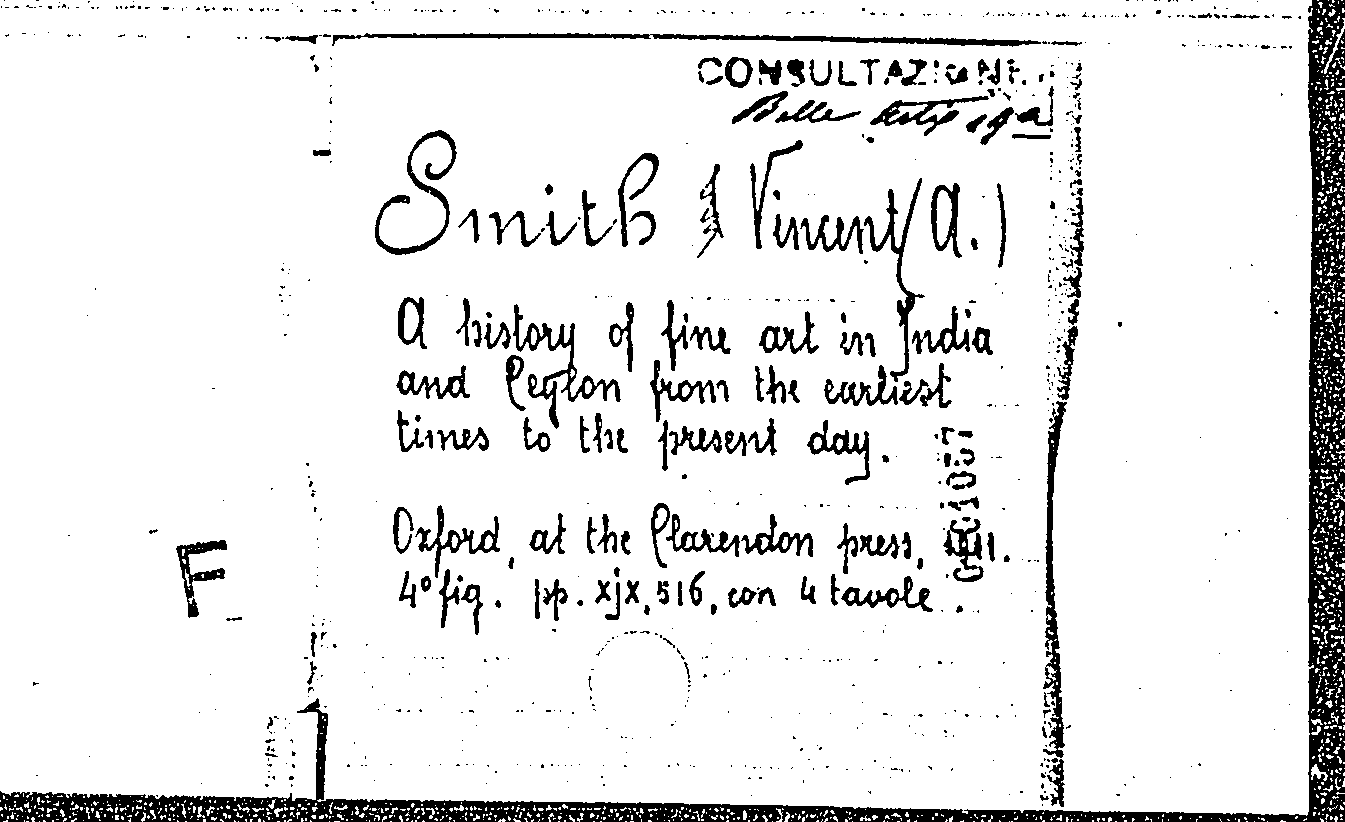 CONSULTAZIONE
Belle Arti 19a
Smith Vincent (A.)
A history of fine art in India
and Ceylon from the earliest
times to the present day.
Oxford, at the Clarendon press, 1911.
4° fig. pp. xjx, 516, con 4 tavole.
F